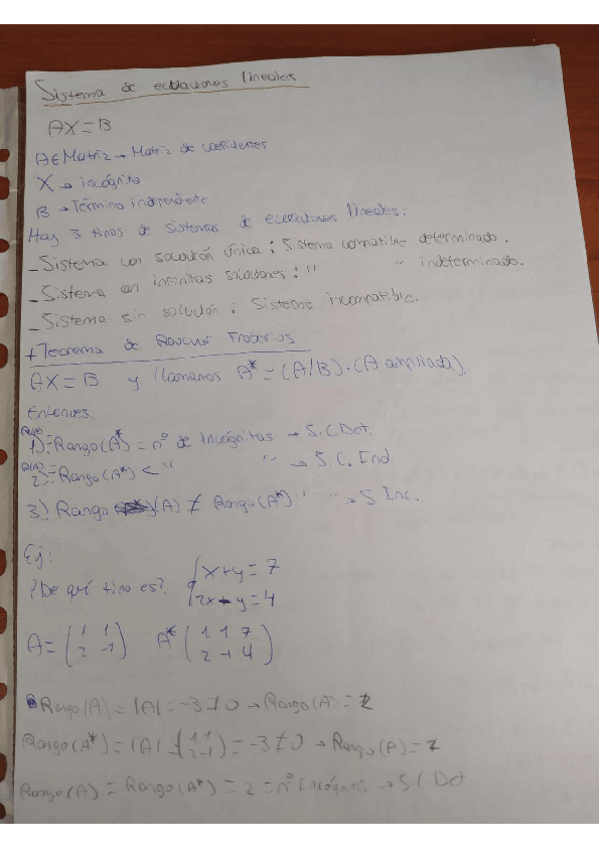 Sistema de ecuaciones lineales
AX=B
A∈Matriz→Matriz de coeficientes
X→incógnita
B→Término independiente
Hay 3 tipos de sistemas de ecuaciones lineales:
-Sistema con solución única: Sistema compatible determinado.
-Sistema con infinitas soluciones: " " indeterminado.
-Sistema sin solución: Sistema incompatible.
+Teorema de Rouché Frobenius
AX=B y llamamos A*=(A/B)·(A ampliada)
Entonces.
1) R(A)=Rango(A*)=nº de Incógnitas→S.C.Det.
2) R(A)=Rango(A*)< " "→S.C. Ind
3) Rango (A)≠Rango(A*) " "→S.Inc.
Ej:
¿De qué tipo es? {x+y=7
2x-y=4
A=(1 1 A*(1 1 7
2 -1) 2 -1 4)
Rango(A)=|A|=-3≠0→Rango(A)=2
Rango(A*)=|A|=(1 1 2 -1)=-3≠0→Rango(A)=2
Rango(A)=Rango(A*)=2=nº Incógnitas→S.C.Det